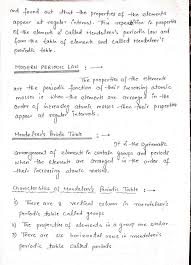 and found out that the properties of the elements
appear at regular interval. This repeatation in properties
of the element is called Mendeleev's periodic law and
form the table of element and called Mendeleev's
periodic table.
MODERN PERIODIC LAW :→
The properties of the elements
are the periodic function of their increasing atomic
masses i.e. when the element are arranged in the
order of increasing atomic masses then their properties
repeat at regular intervals.
Mendeleev's Periodic Table :→
It is the systematic
arrangement of element in certain groups and periods
when the element are arranged in the order of
their increasing atomic masses.
Characteristics of Mendeleev's Periodic Table :→
1) There are 8 vertical column in mendeleev's
periodic table called groups
2) The properties of elements in a group are similar
3) There are six horizontal rows in mendeleev's
periodic table called periods